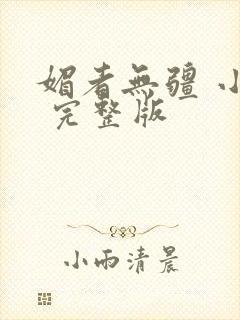 媚者無疆 小
完整版
小雨清晨